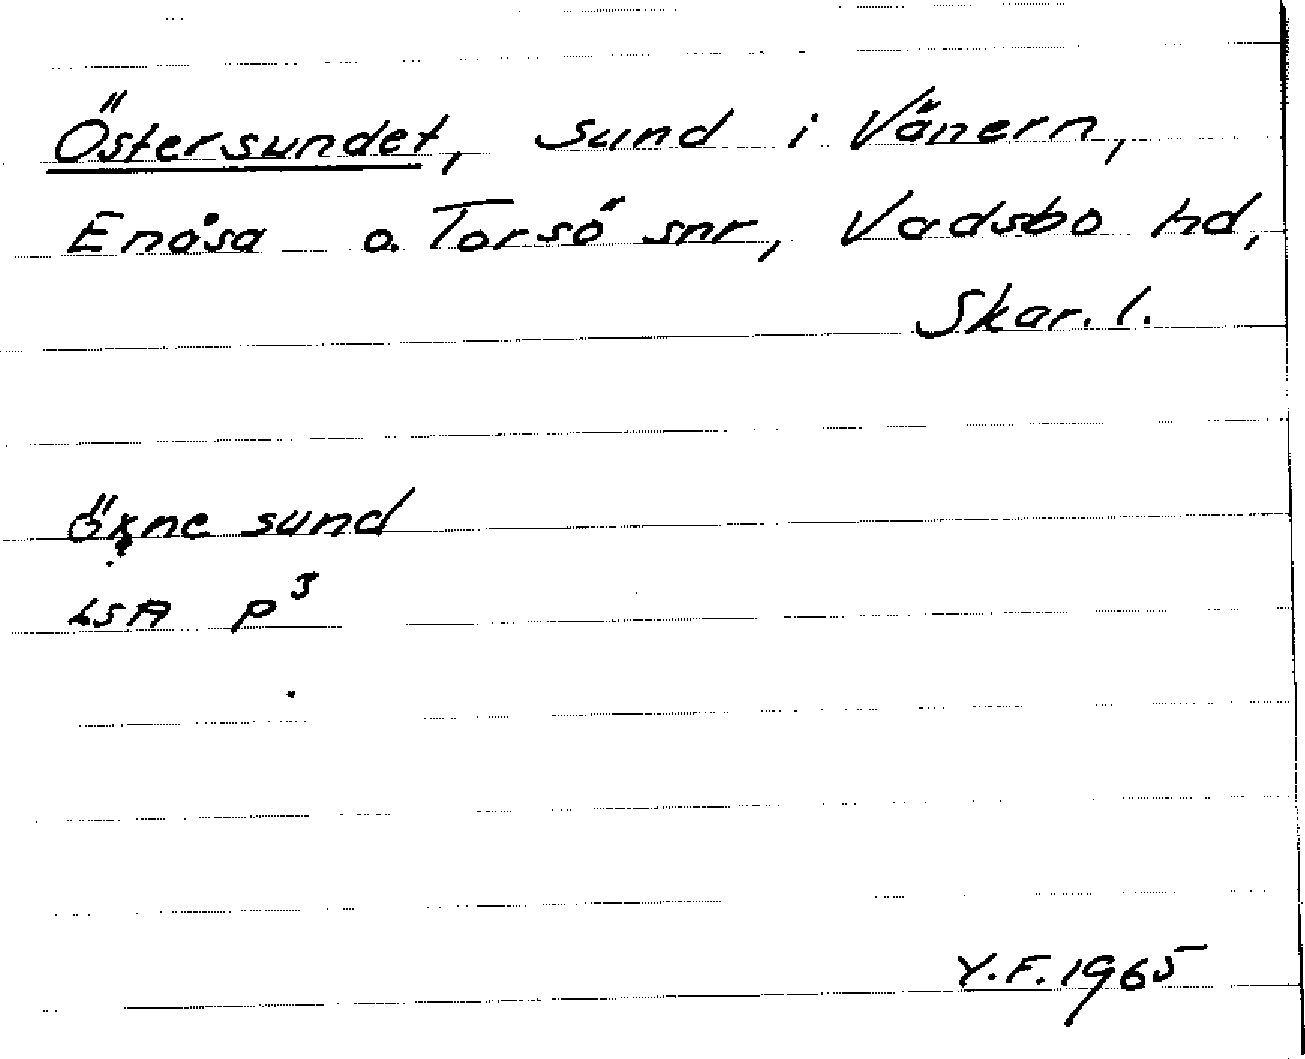 Östersundet, sund i Vänern,
Enåsa o. Torsö snr, Vadsbo hd,
Skar. l.
sund
LSA P³
Y.F. 1965